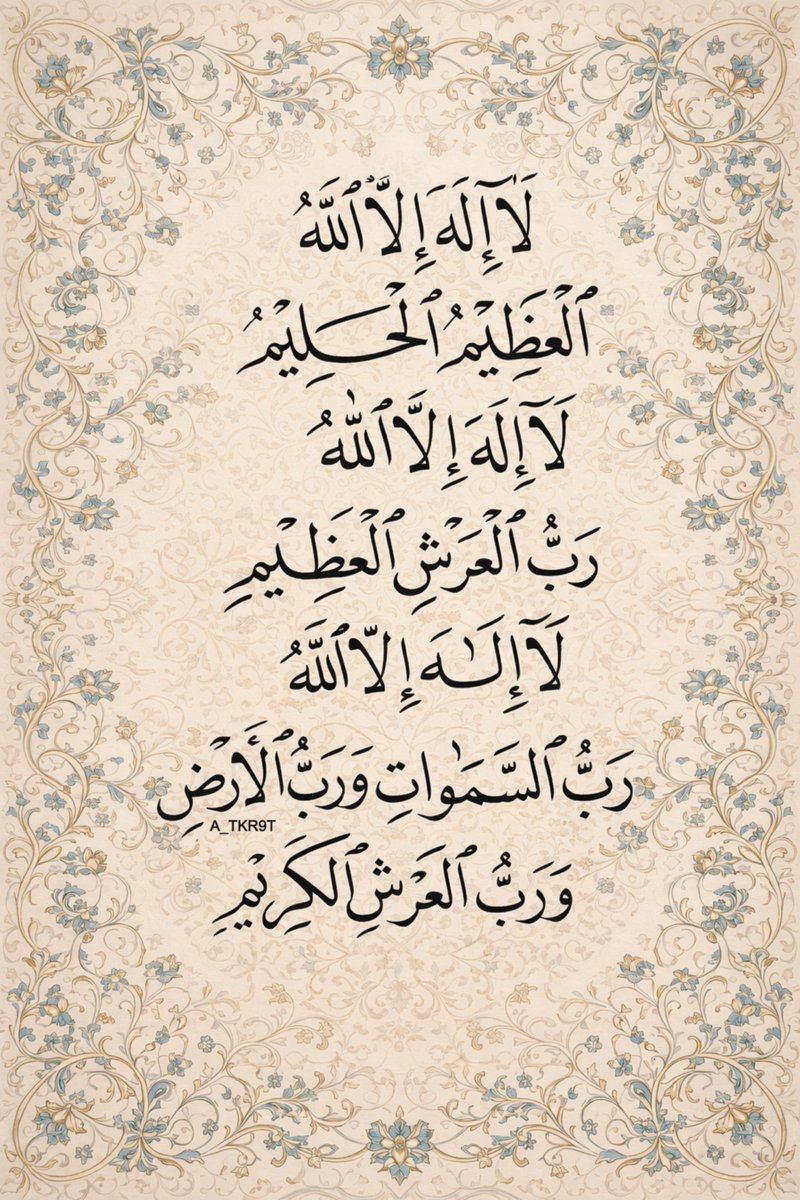 لَآ إِلَهَ إِلَّا ٱللَّهُ
ٱلْعَظِيْمُ ٱلْحَلِيْمُ
لَآ إِلَهَ إِلَّا ٱللّٰهُ
رَبُّ ٱلْعَرْشِ ٱلْعَظِيْمِ
لَآ إِلَـٰهَ إِلَّا ٱللَّهُ
رَبُّ ٱلسَّمَٰوَاتِ وَرَبُّ ٱلْأَرْضِ
A_TKR9T
وَرَبُّ ٱلعَرْشِ ٱلكَرِيْمِ